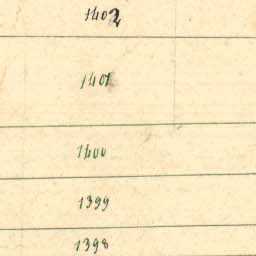 1402
1401
1400
1399
1398